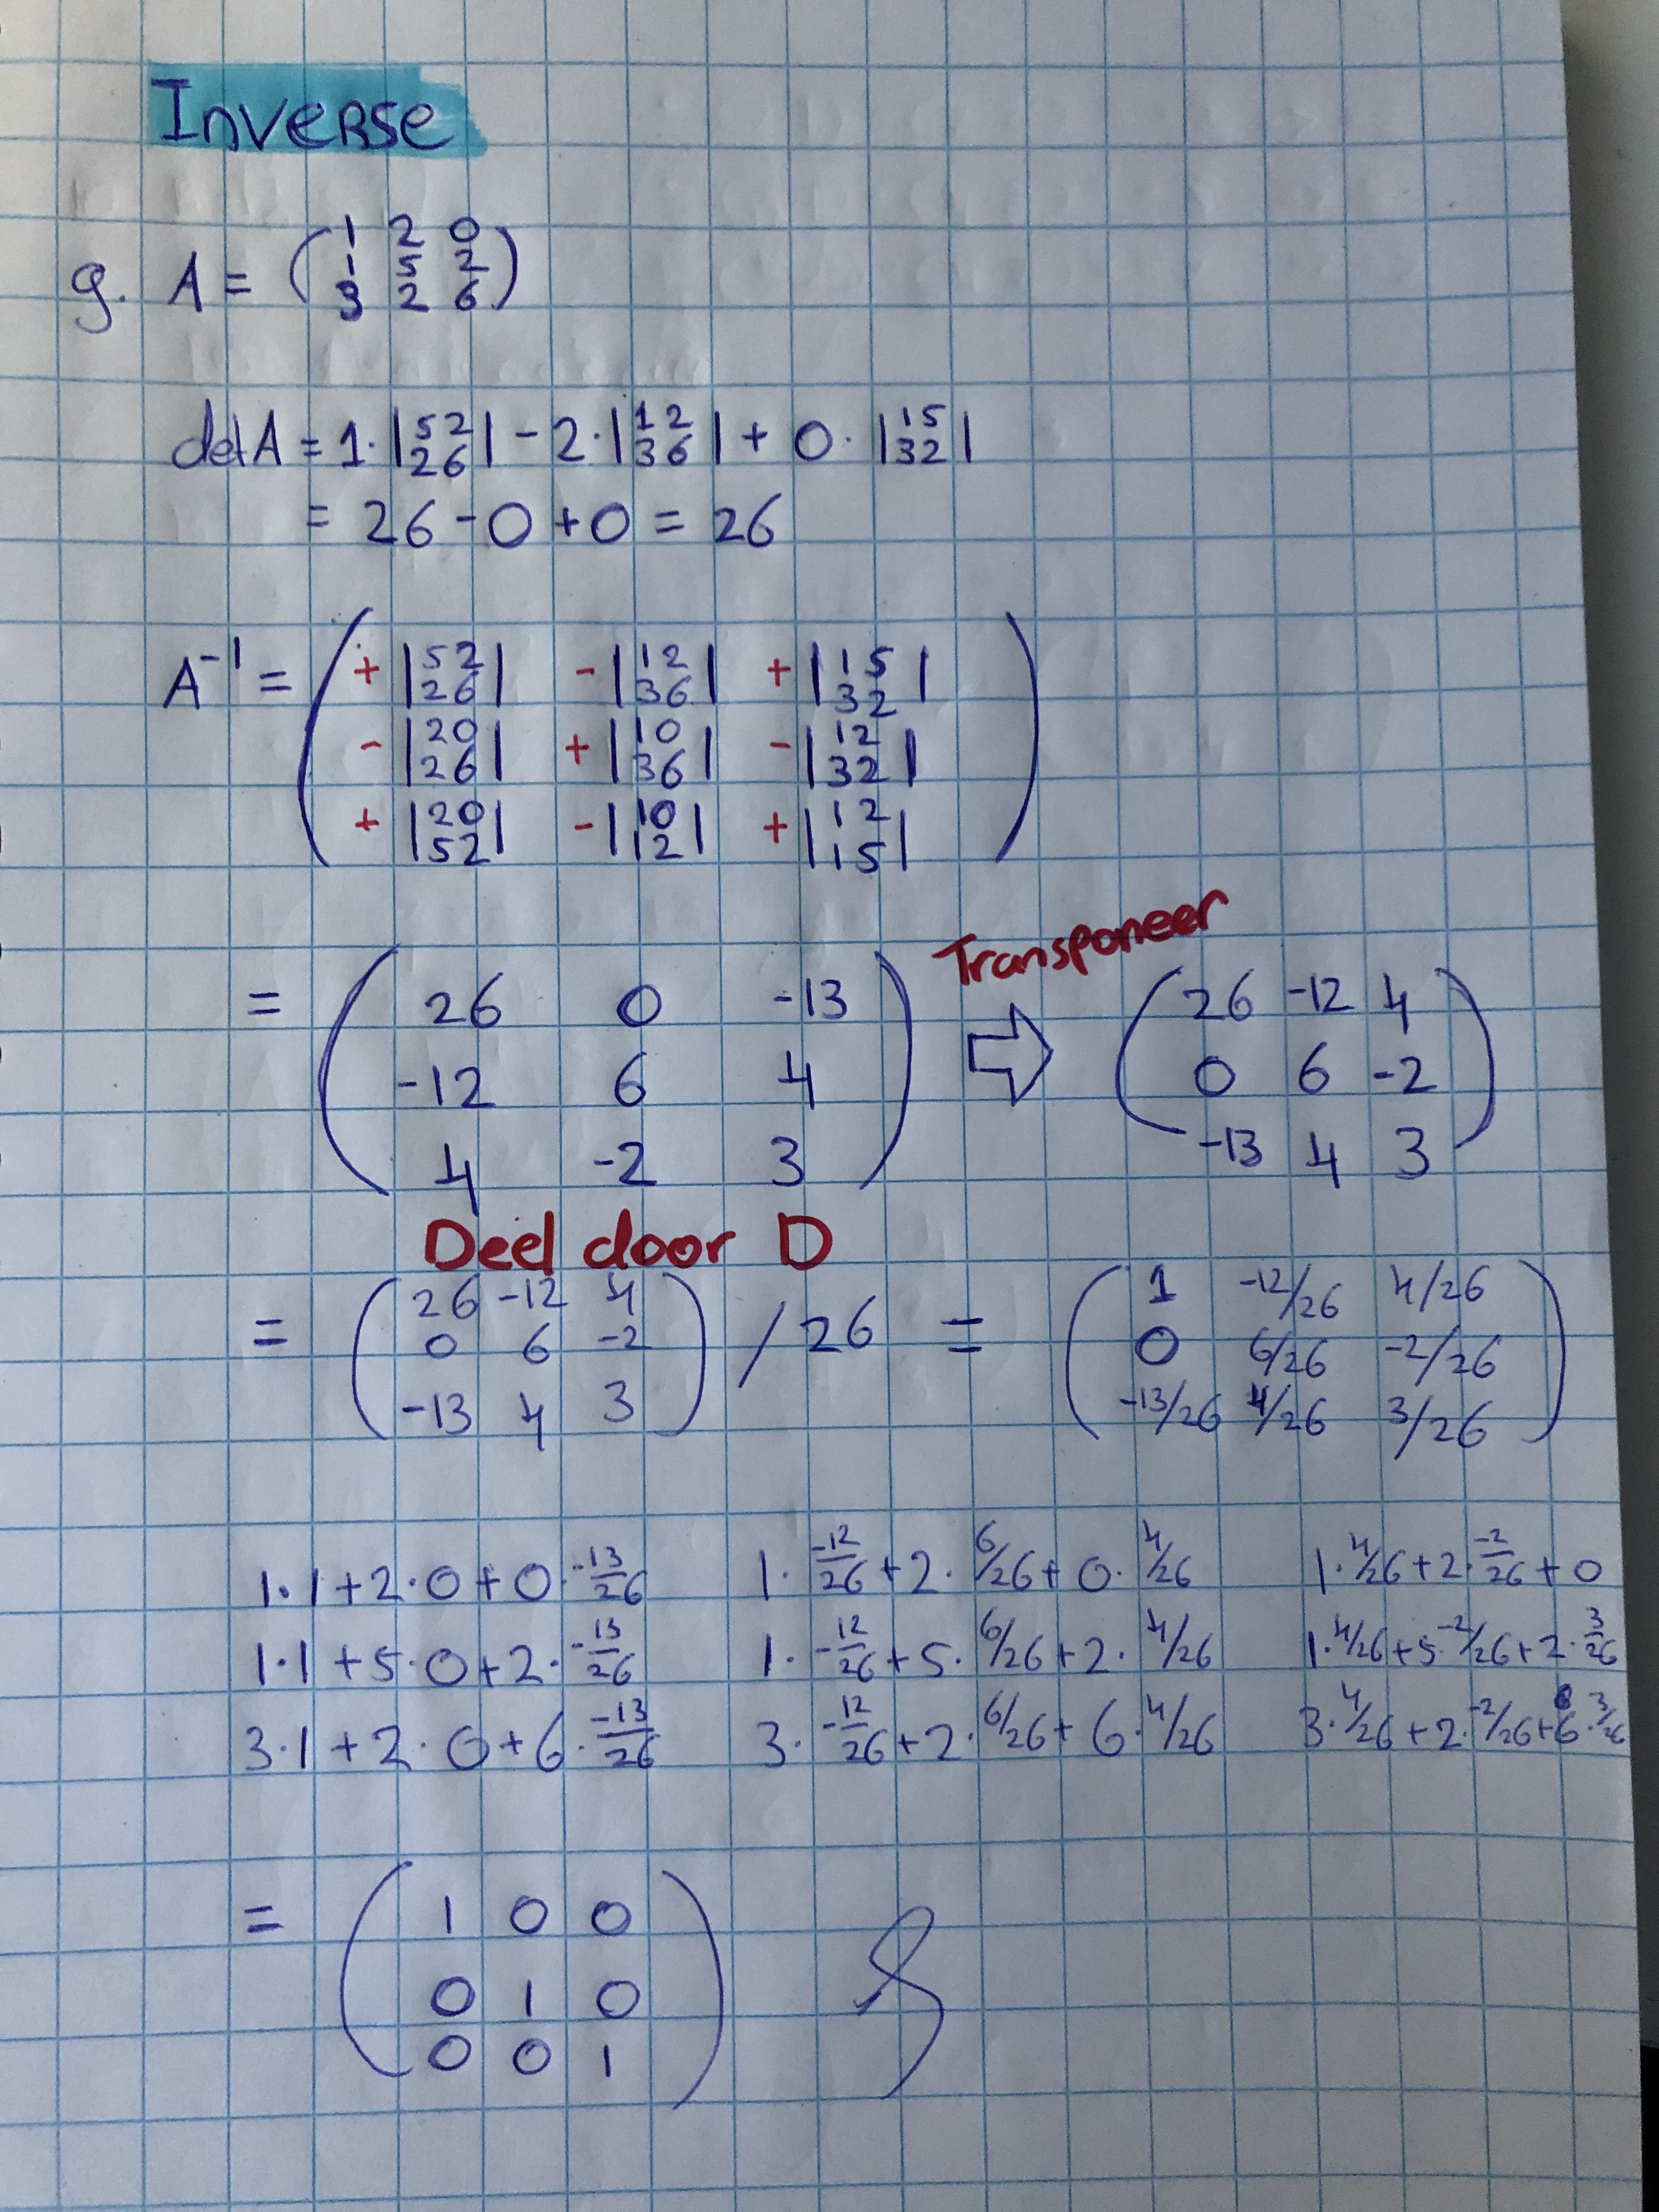 Inverse
1 2 0
g. A = ( 1 5 2 )
3 2 6
det A = 1 · |5 2| - 2 · |1 2| + 0 · |1 5|
2 6 3 6 3 2
= 26 - 0 + 0 = 26
A⁻¹ = ( + |5 2| - |1 2| + |1 5| )
2 6 3 6 3 2
- |2 0| + |1 0| - |1 2|
2 6 3 6 3 2
+ |2 0| - |1 0| + |1 2|
5 2 1 2 1 5
Transponeer
= ( 26 0 -13 ) ⇨ ( 26 -12 4 )
-12 6 4 0 6 -2
4 -2 3 -13 4 3
Deel door D
26 -12 4 1 -12/26 4/26
= ( 0 6 -2 ) / 26 = ( 0 6/26 -2/26 )
-13 4 3 -13/26 4/26 3/26
1·1 + 2·0 + 0·-13/26 1·-12/26 + 2·6/26 + 0·4/26 1·4/26 + 2·-2/26 + 0
1·1 + 5·0 + 2·-13/26 1·-12/26 + 5·6/26 + 2·4/26 1·4/26 + 5·-2/26 + 2·3/26
3·1 + 2·0 + 6·-13/26 3·-12/26 + 2·6/26 + 6·4/26 3·4/26 + 2·-2/26 + 6·3/26
= ( 1 0 0 )
0 1 0
0 0 1